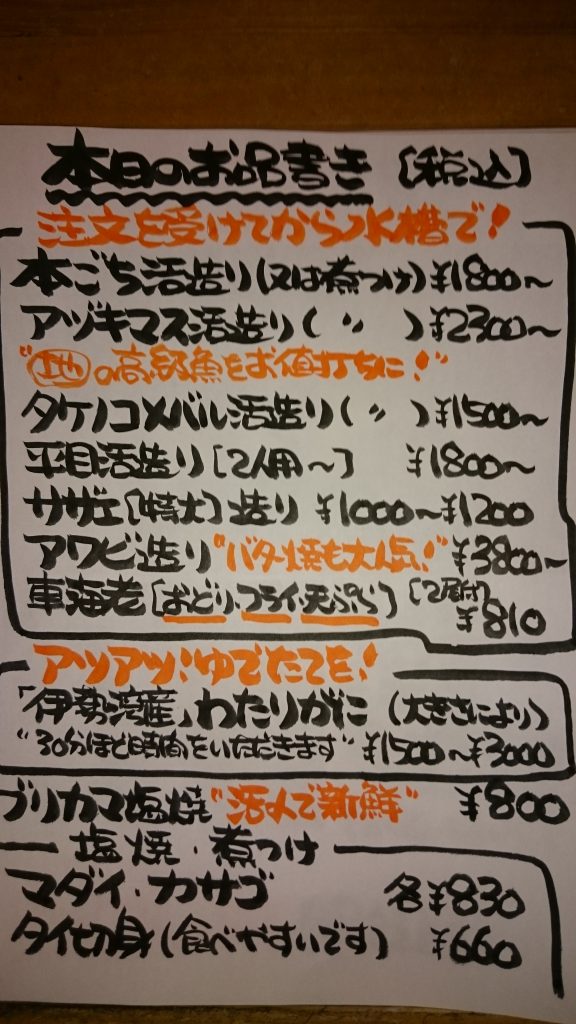 本日のお品書き [税込]
注文を受けてから水槽で!
本ごち活造り(又は煮つけ)¥1800〜
アヅキマス活造り(〃)¥2300〜
"地の高級魚をお値打ちに!"
タケノコメバル活造り(〃)¥1500〜
平目活造り[2人用〜] ¥1800〜
サザエ[特大]造り ¥1000〜¥1200
アワビ造り"バター焼も大人気!"¥3800〜
車海老[おどり・フライ・天ぷら][2尾付]¥810
アツアツ!ゆでたてを!
「伊勢湾産」わたりがに(大きさにより)
"30分ほど時間をいただきます"¥1500〜¥3000
ブリカマ塩焼"活〆で新鮮" ¥800
塩焼・煮つけ
マダイ・カサゴ 各¥830
タイ切身(食べやすいです) ¥660